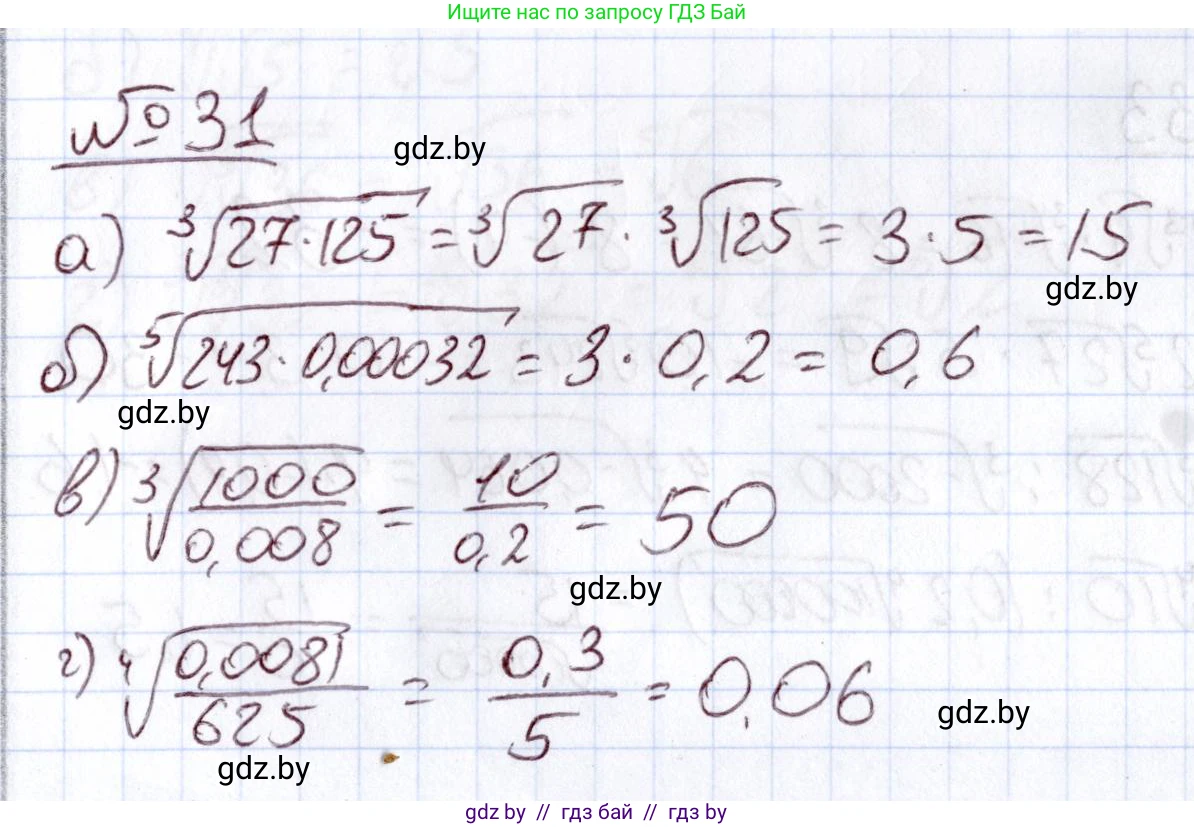 Ищите нас по запросу ГДЗ Бай
№ 31
gdz.by
а) ∛(27·125) = ∛27 · ∛125 = 3·5 = 15
gdz.by
б) ⁵√(243·0,00032) = 3·0,2 = 0,6
gdz.by
в) ∛(1000/0,008) = 10/0,2 = 50
gdz.by
г) ⁴√(0,0081/625) = 0,3/5 = 0,06
gdz.by
gdz.by
gdz by // гдз бай // гдз by